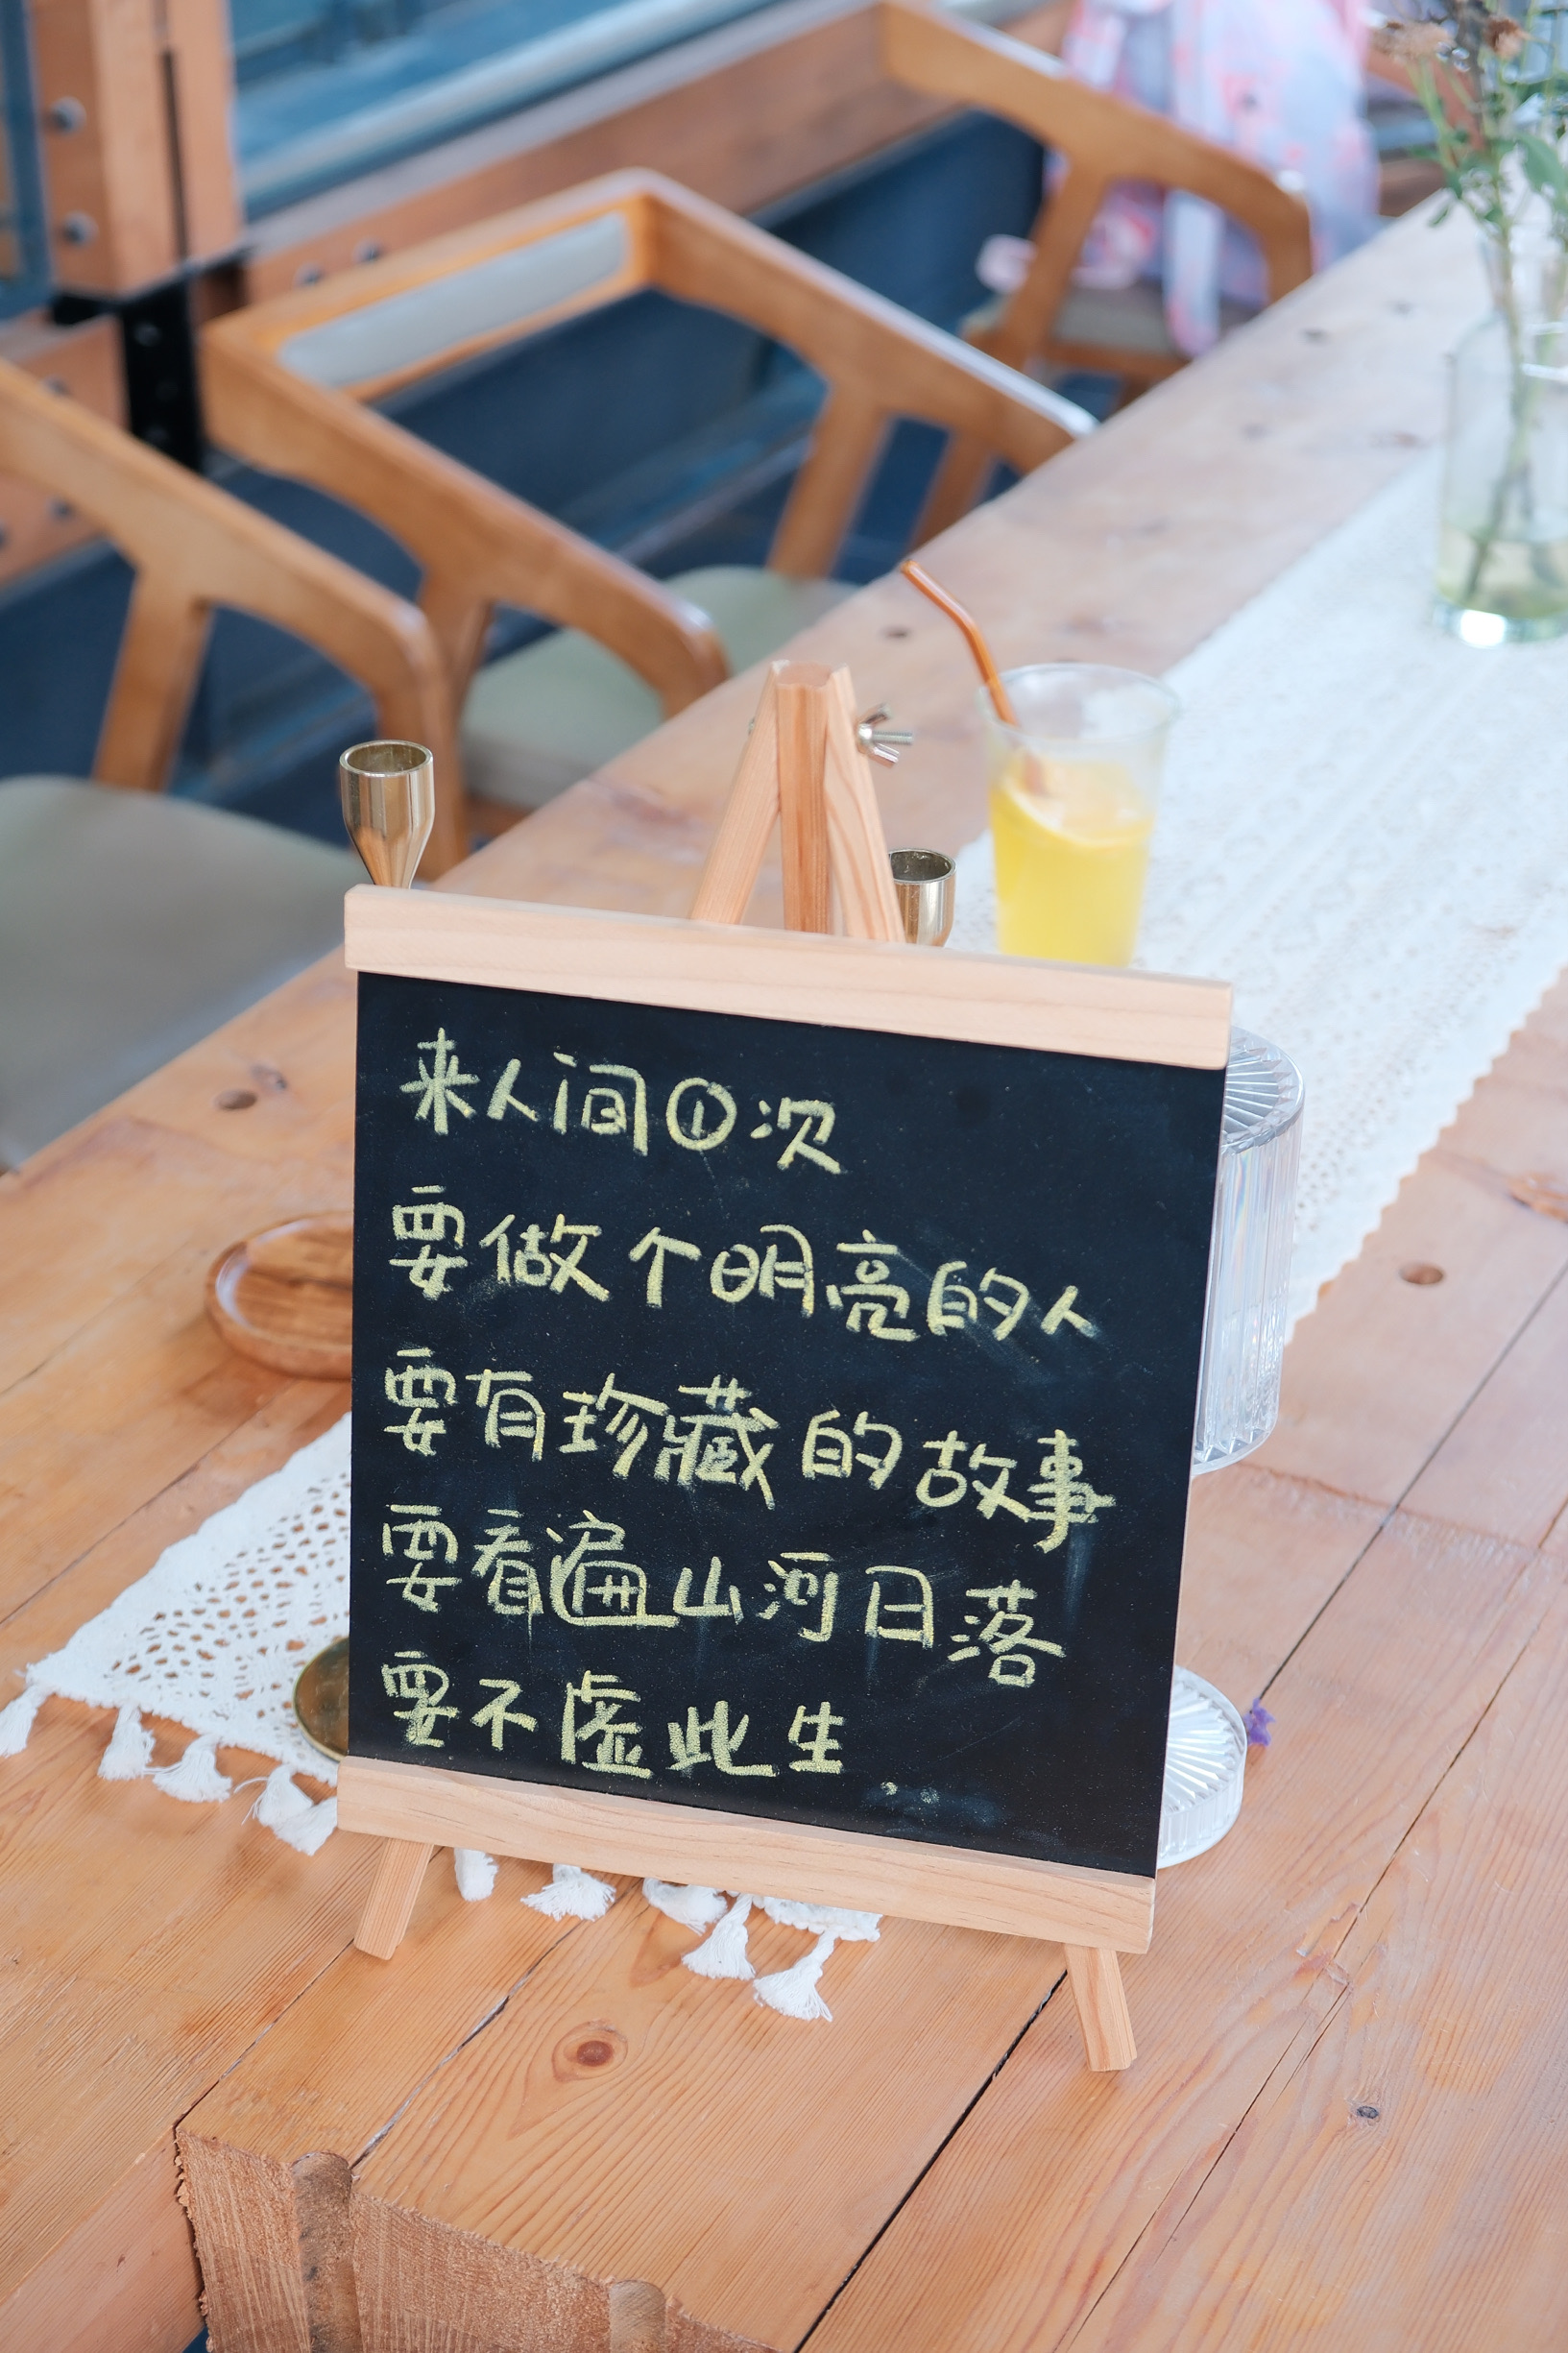 来人间①次
要做个明亮的人
要有珍藏的故事
要看遍山河日落
要不虚此生